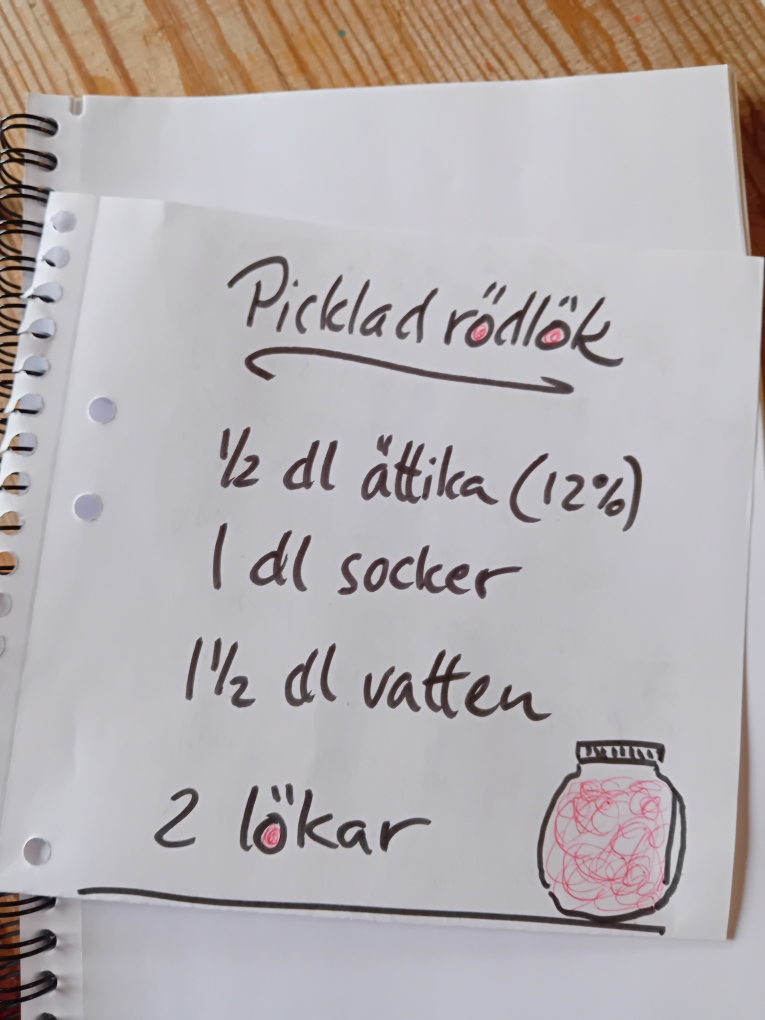 Picklad rödlök
1/2 dl ättika (12%)
1 dl socker
1 1/2 dl vatten
2 lökar